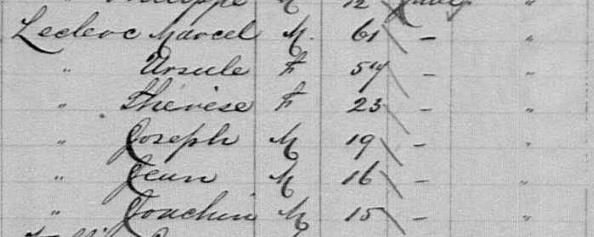 Philippe M 12
Leclerc Marcel M. 61 — "
" Ursule F 54 — "
" Thérèse F 23 — "
" Joseph M 19 — "
" Jean M 16 — "
" Joachin M 15 — "